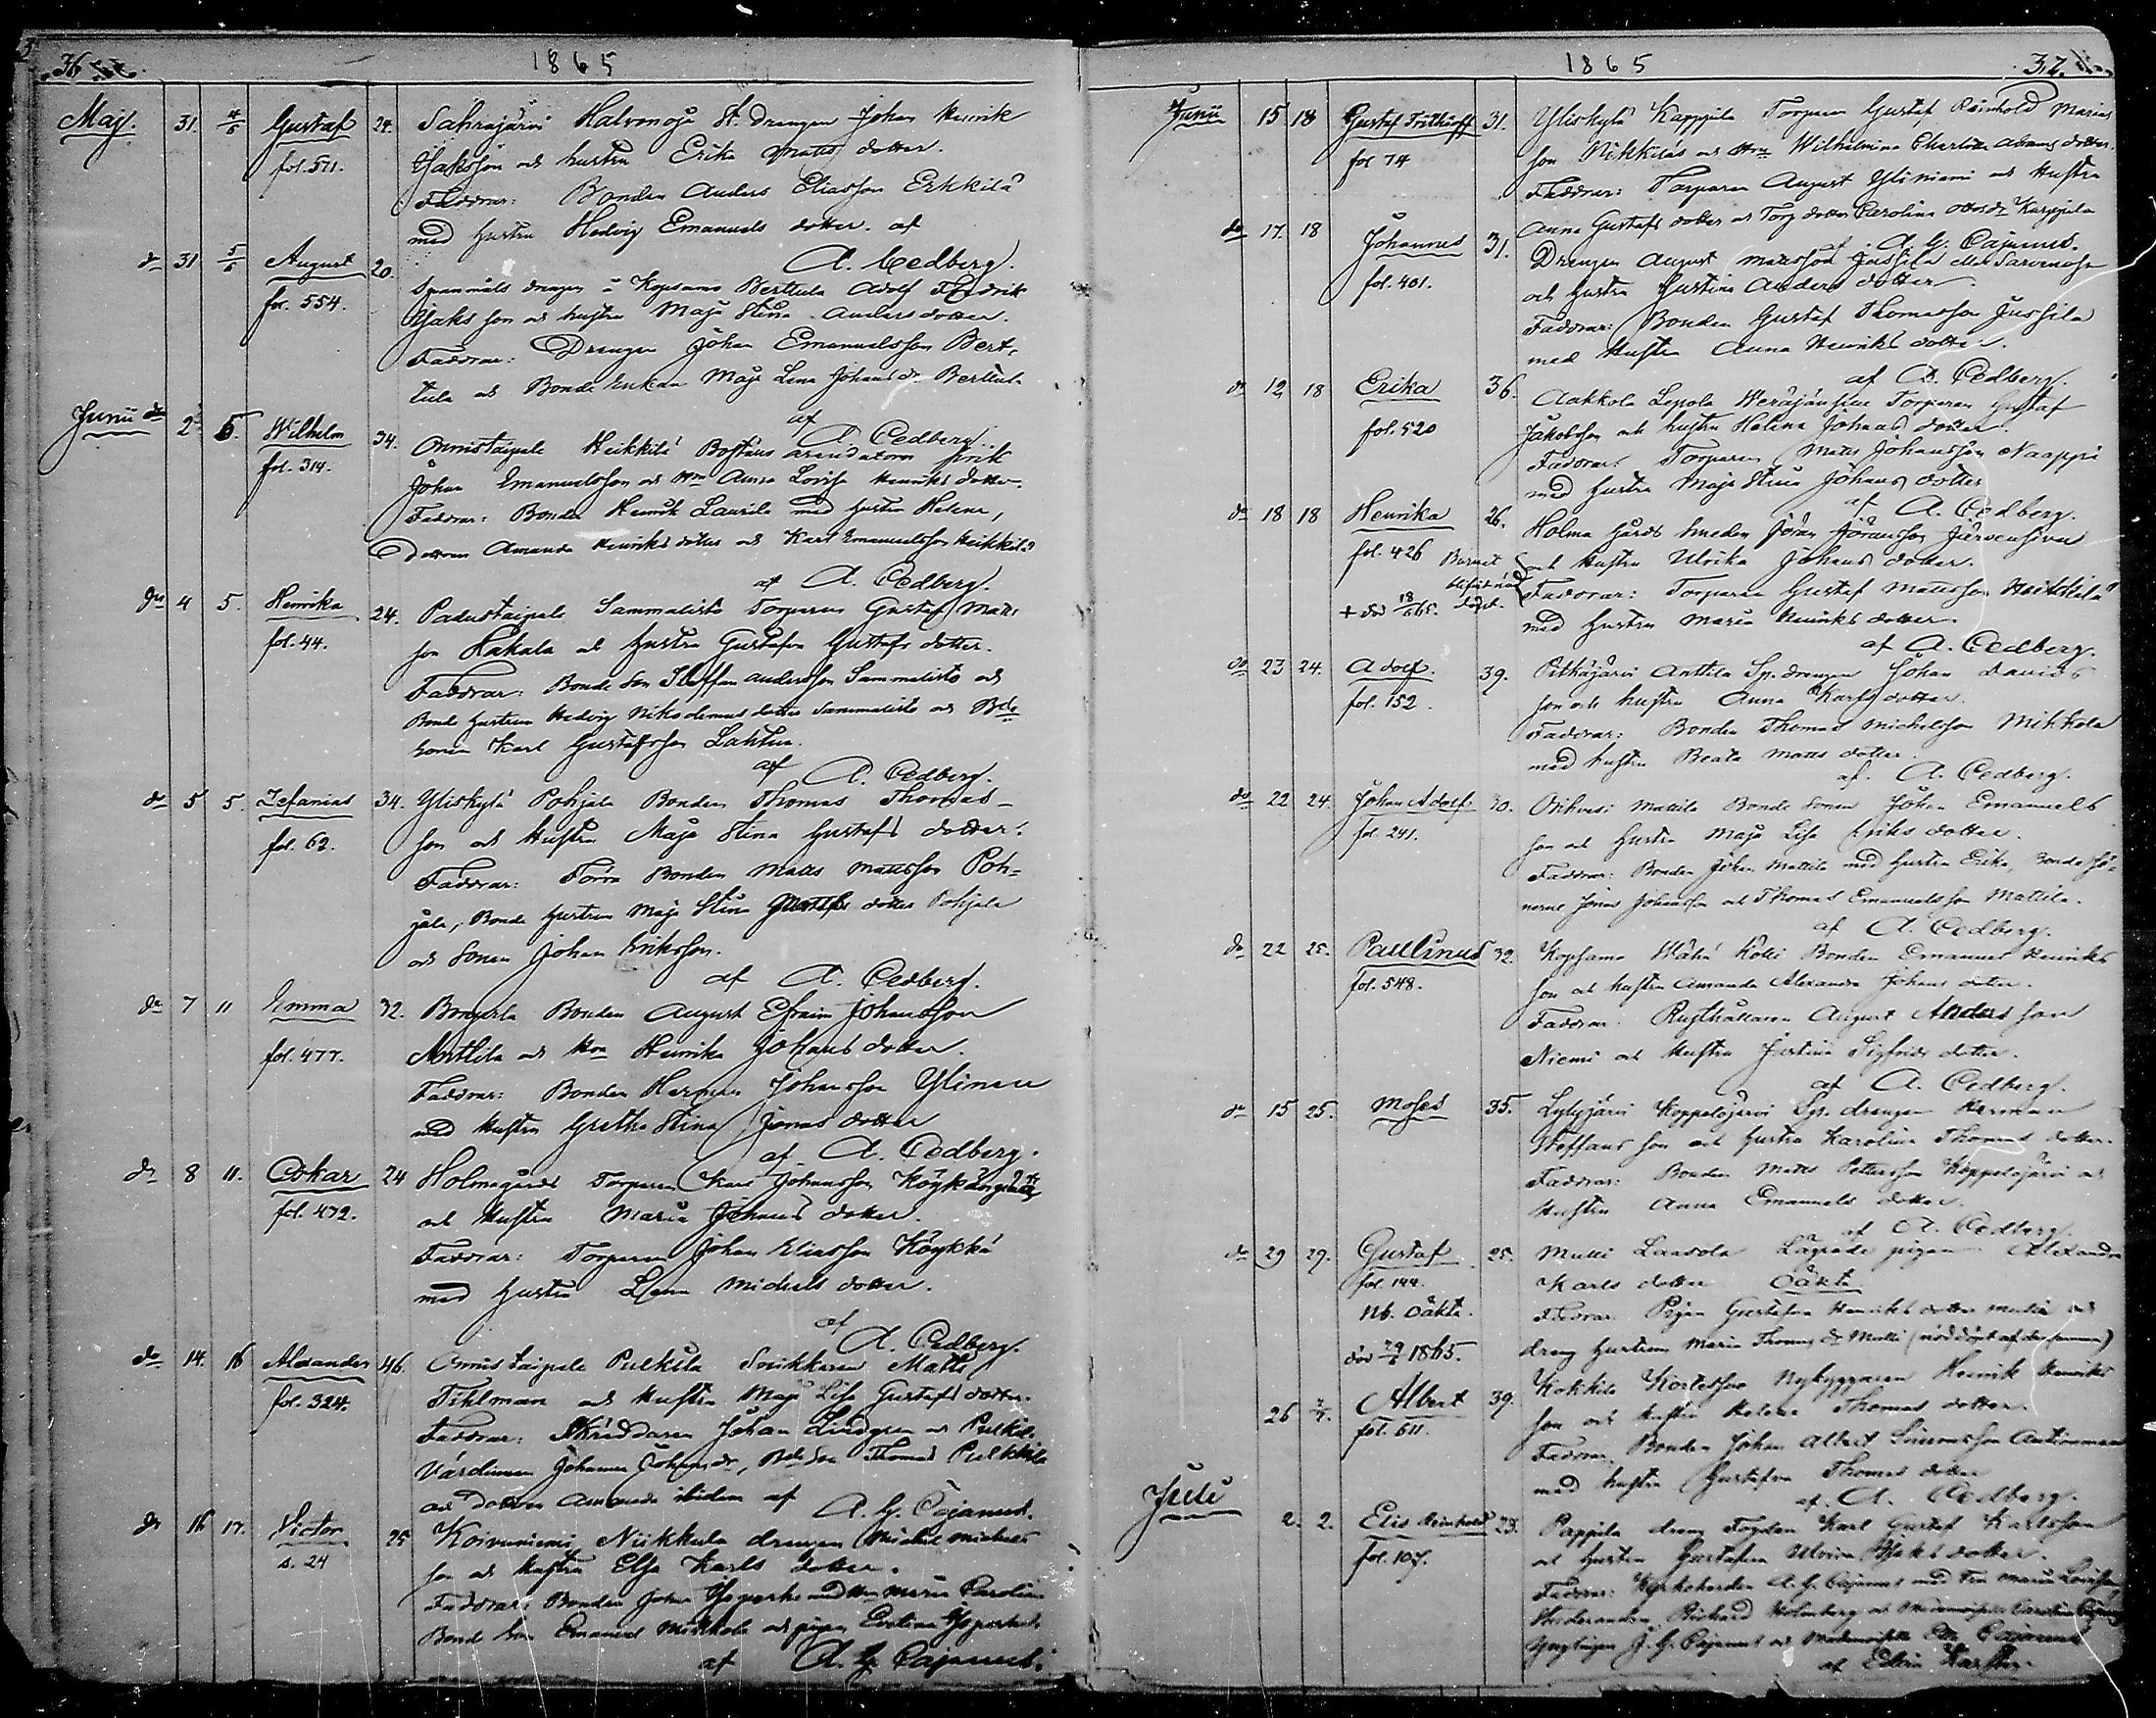 36
1865
Maji. 31. 4/6 Gustaf 24. Sahrajärvi Halvonoja St. Drengen Johan Henrik
fol. 511. Isaksson och hustru Erika Matts dotter.
Faddrar: Bonden Anders Eliasson Erkkilä
med hustru Hedvig Emanuels dotter. af
A. Cedberg.
do 31 5/6 August 20. Spanmåls drengen i Kopsamo Berttula Adolf Fredrik
fol. 554. Isaks son och hustru Maja Stina Anders dotter.
Faddrar: Drengen Johan Emanuelsson Bert-
tula och Bonde Enkan Maja Lena Johans dr Berttula
af A. Cedberg.
Junii do 2 5. Wilhelm 34. Onnistaipale Heikkilä Bostäns arendatorn Erik
fol. 314. Johan Emanuelsson och Hru Anna Lovisa Henriks dotter.
Faddrar: Bonden Henrik Laurila med hustru Helena,
Dottren Amanda Henriks dotter och Karl Emanuelsson Heikkilä
af A. Cedberg.
do 4 5. Henrika 24. Padustaipale Sammalisto Torparen Gustaf Matts
fol. 44. son Hakala och hustru Gustafva Gustafs dotter.
Faddrar: Bonde Son Staffan Andersson Sammalisto och
Bonde hustrun Hedvig Nikodemus dotter Sammalisto och Bde
sonen Karl Gustafsson Lahtua.
af A. Cedberg.
do 5 5. Zefanias 34. Yliskylä Pohjala Bonden Thomas Thomas-
fol. 62. son och Hustru Maja Stina Gustafs dotter.
Faddrar: Förra Bonden Matts Mattsson Poh-
jala, Bonde hustrun Maja Stina dotter Pohjala
och Sonen Johan Eriksson.
af A. Cedberg.
do 7 11 Emma 32. Bonden August Efraim Johansson
fol. 477. Anttila och Hru Henrika Johans dotter.
Faddrar: Bonden Herman Johansson Ylinen
med hustru Gretha Stina Jonas dotter
af A. Cedberg.
do 8 11. Oskar 24 Holmagårds Torparen Karl Johansson
fol. 472. och Hustru Maria Johans dotter.
Faddrar: Torparen Johan Eliasson Köykkä
med hustru Lena Michels dotter.
af A. Cedberg.
do 14. 16 Alexander 46. Onnistaipale Pulkkila Snikkaren Matts
fol. 324. Tihlman och Hustru Maja Lisa Gustafs dotter.
Faddrar: Skräddaren Johan Lindgren och Pulkkila
Värdinnan Johanna Johansdr, Bde Son Thomas Pulkkila
och Dottren Amanda ibidem af A. G. Cajanus.
do 16 17. Victor 25 Koivuniemi Niikkula drengen Michel Michels
s. 24 son och Hustru Elsa Karls dotter.
Faddrar: Bonden Johan med Hru Maria Carolina
Bonde Son Emanuel Mikkola och pigan Evelina
af A. G. Cajanus.
1865
37.
Junii 15 18 Gustaf Frithioff 31. Yliskylä Kappila Torparen Gustaf Reinhold Marias
fol 74 son Nikkiläs och Hru Wilhelmina Charlotta Abrams dotter.
Faddrar: Torparen August Yliniemi och Hustru
Anna Gustafs dotter och Torp dotter Carolina Kappila
af A. G. Cajanus.
do 17. 18 Johannes 31. Drengen August Mattsson Jussila
fol. 401. och hustru Justina Anders dotter
Faddrar: Bonden Gustaf Thomasson Jussila
med Hustru Anna Henriks dotter.
af A. Cedberg.
do 12 18 Erika 36. Aakkola Lepola Torparen Gustaf
fol. 520 Jakobsson och hustru Helena Johans dotter.
Faddrar: Torparen Matts Johansson Naappi
med hustru Maja Stina Johans dotter
af A. Cedberg.
do 18 18 Henrika 26. Holma Gårds Smeden Jöran Jöransson
fol. 426 Barnet och Hustru Ulrika Johans dotter.
+ död 18/6 65. döpt. Faddrar: Torparen Gustaf Mattsson Heikkilä
med hustru Maria Henriks dotter.
af A. Cedberg.
do 23 24. Adolf. 39. Pitkäjärvi Anttila Sp. drengen Johan Davids
fol. 152. son och hustru Anna Karls dotter.
Faddrar: Bonden Thomas Michelsson Mikkola
med hustru Beata Matts dotter.
af A. Cedberg.
do 22 24. Johan Adolf 30. Orihvesi Mattila Bonde Sonen Johan Emanuels
fol. 241. son och hustru Maja Lisa Eriks dotter.
Faddrar: Bonden Johan Mattila med hustru Erika, Bonde sö-
nerne Jonas Johansson och Thomas Emanuelsson Mattila.
af A. Cedberg.
do 22 25. Paulinus 32. Kopsamo Wähä Kolli Bonden Emanuel Henriks
fol. 548. son och hustru Amanda Alexandra Johans dotter.
Faddrar: Rusthållaren August Andersson
Niemi och Hustru Justina Sigfrids dotter.
af A. Cedberg.
do 15 25. Moses 35. Lylyjärvi Koppelojärvi Sp. drengen Herman
Steffans son och hustru Karolina Thomas dotter.
Faddrar: Bonden Matts Pettersson Koppelojärvi och
Hustru Anna Emanuels dotter.
af A. Cedberg.
do 29 29. Gustaf 25. Multi Laasola Lägrade pigan Alexandra
fol. 144. Karls dotter Oäkta
Nb. Oäkta. Faddrar Pigan Gustafva Henriks dotter Multi och
död 29/6 1865. dreng hustrun Maria Thomas dr Multi (nöddöpt af den samma)
26 2/7. Albert 39. Kokkila Nybyggaren Henrik Henriks
fol. 611. son och hustru Helena Thomas dotter.
Faddrar. Bonden Johan Albert Simonsson
med hustru Gustafva Thomas dotter
af A. Cedberg.
Julii 2. 2. Elis Reinhold 23. Pappila dreng Fogden Karl Gustaf Karlsson
fol. 107. och hustru Gustafva Ulrica Isaks dotter.
Faddrar: Kyrkoherden A. G. Cajanus med Fru Maria Lovisa,
Studeranden Richard Holmberg och Mademoiselle Carolina
Ynglingen J. G. Cajanus och Mademoiselle Cajanus
af Edvin Karsten.